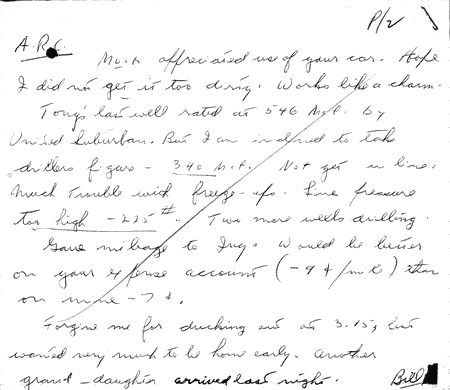 P/2
A.R.C.
Much appreciated use of your car. Hope
I did not get it too dirty. Works like a charm.
Tong's last well rated at 546 Mcf. by
United Suburban. But I am inclined to take
drillers figure - 340 Mcf. Not yet in line.
Much trouble with freeze-ups. Line pressure
too high - 225#. Two more wells drilling.
Gave mileage to Inez. Would be better
on your expense account (-9¢/mile) than
on mine - 7¢.
Forgive me for ducking out at 3.15, but
wanted very much to be home early. Another
grand-daughter arrived last night. Bill